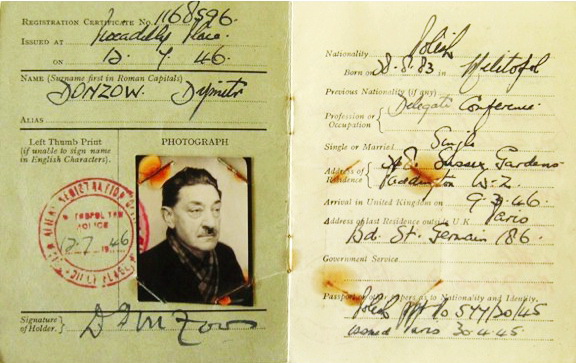 REGISTRATION CERTIFICATE No. 1168596.
ISSUED AT Piccadilly Place.
ON 12. 7. 46.
NAME (Surname first in Roman Capitals)
DONZOW. Dymitr
ALIAS
Left Thumb Print
(if unable to sign name
in English Characters).
PHOTOGRAPH
ALIEN REGISTRATION OFFICE
METROPOLITAN
POLICE
12.7.1946
PICCADILLY PLACE
Signature
of Holder.
Nationality Polish
Born on 28.8.83 in Melitopol
Previous Nationality (if any)
Profession or
Occupation
Delegate Conference.
Single or Married. Single
Address of
Residence
Sussex Gardens
Paddington W.2.
Arrival in United Kingdom on 9.3.46.
Address of last Residence outside U.K. Paris
Bd. St. Germain 186.
Government Service
Passport or other papers as to Nationality and Identity.
Polish ppt No 577/30/45
issued Paris 30.4.45